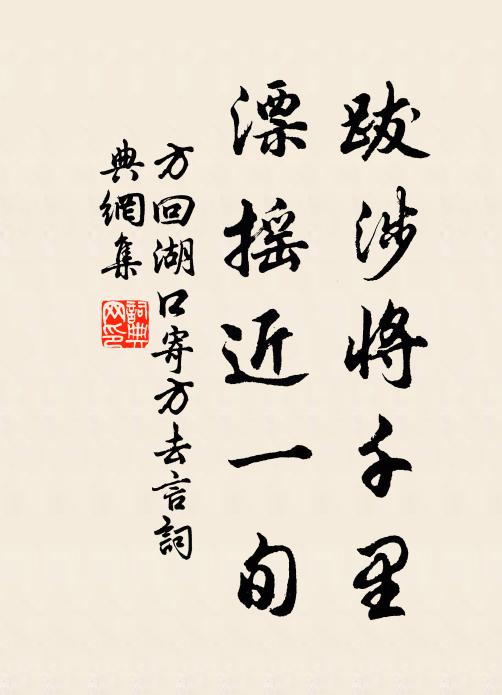 跋涉将千里
漂摇近一旬
方回湖口寄方去言詞
典網集
詞典网印